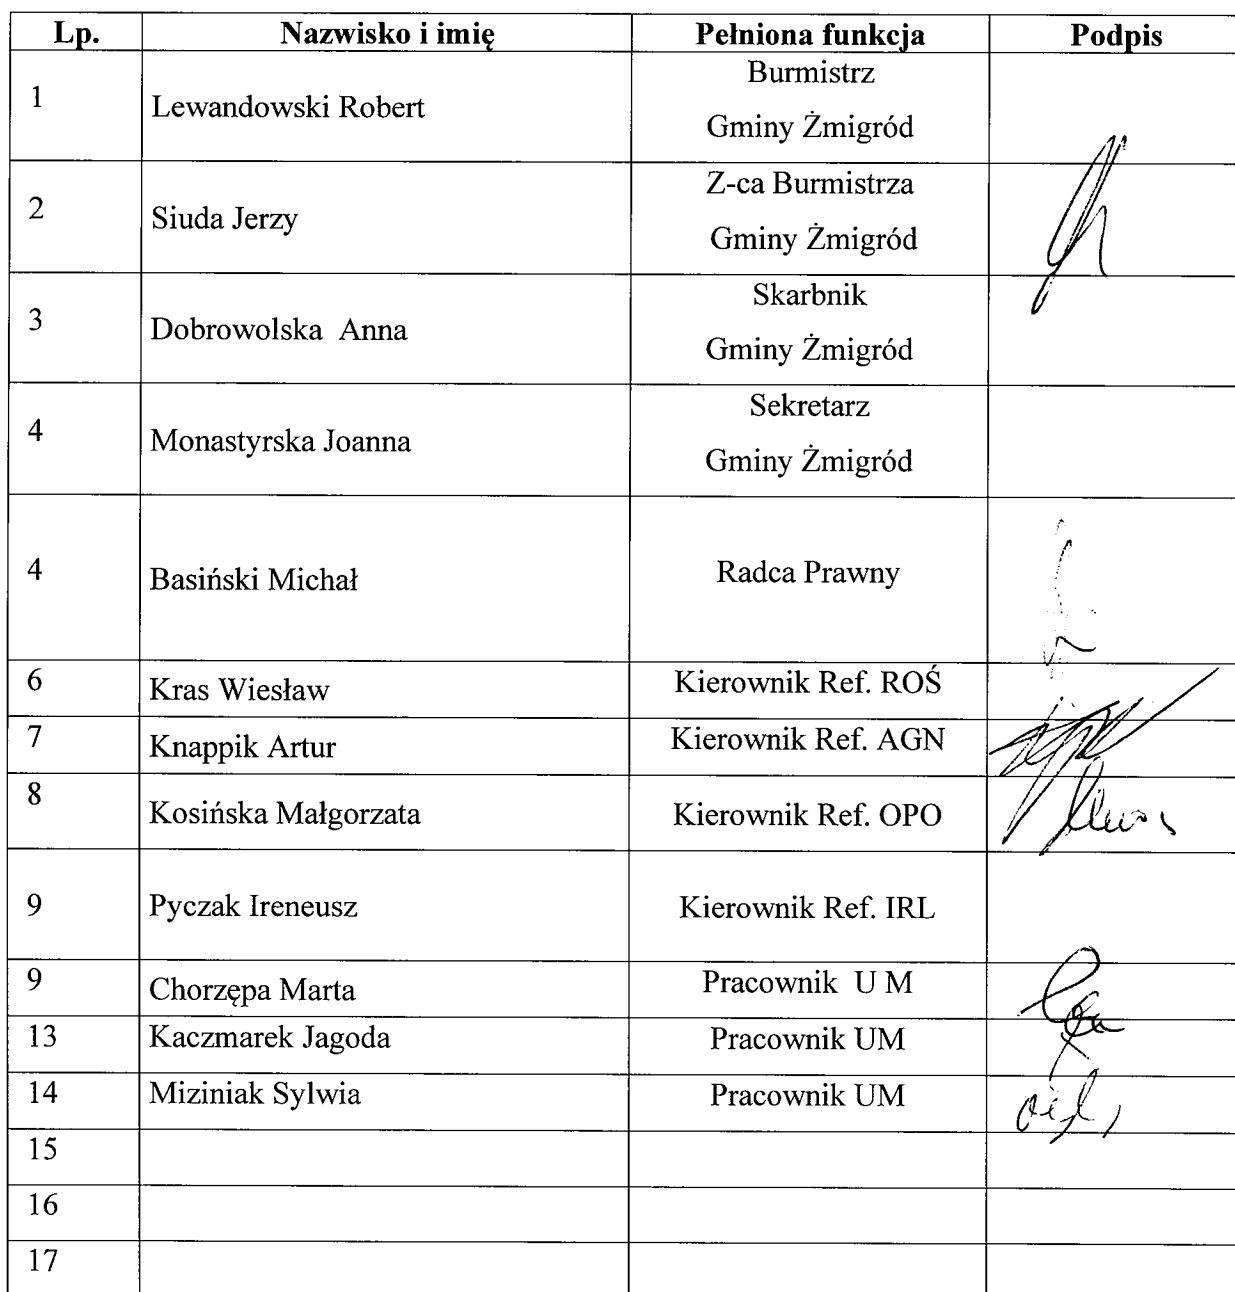 Lp. Nazwisko i imię Pełniona funkcja Podpis
1 Lewandowski Robert Burmistrz
Gminy Żmigród
2 Siuda Jerzy Z-ca Burmistrza
Gminy Żmigród
3 Dobrowolska Anna Skarbnik
Gminy Żmigród
4 Monastyrska Joanna Sekretarz
Gminy Żmigród
4 Basiński Michał Radca Prawny
6 Kras Wiesław Kierownik Ref. ROŚ
7 Knappik Artur Kierownik Ref. AGN
8 Kosińska Małgorzata Kierownik Ref. OPO
9 Pyczak Ireneusz Kierownik Ref. IRL
9 Chorzępa Marta Pracownik U M
13 Kaczmarek Jagoda Pracownik UM
14 Miziniak Sylwia Pracownik UM
15
16
17